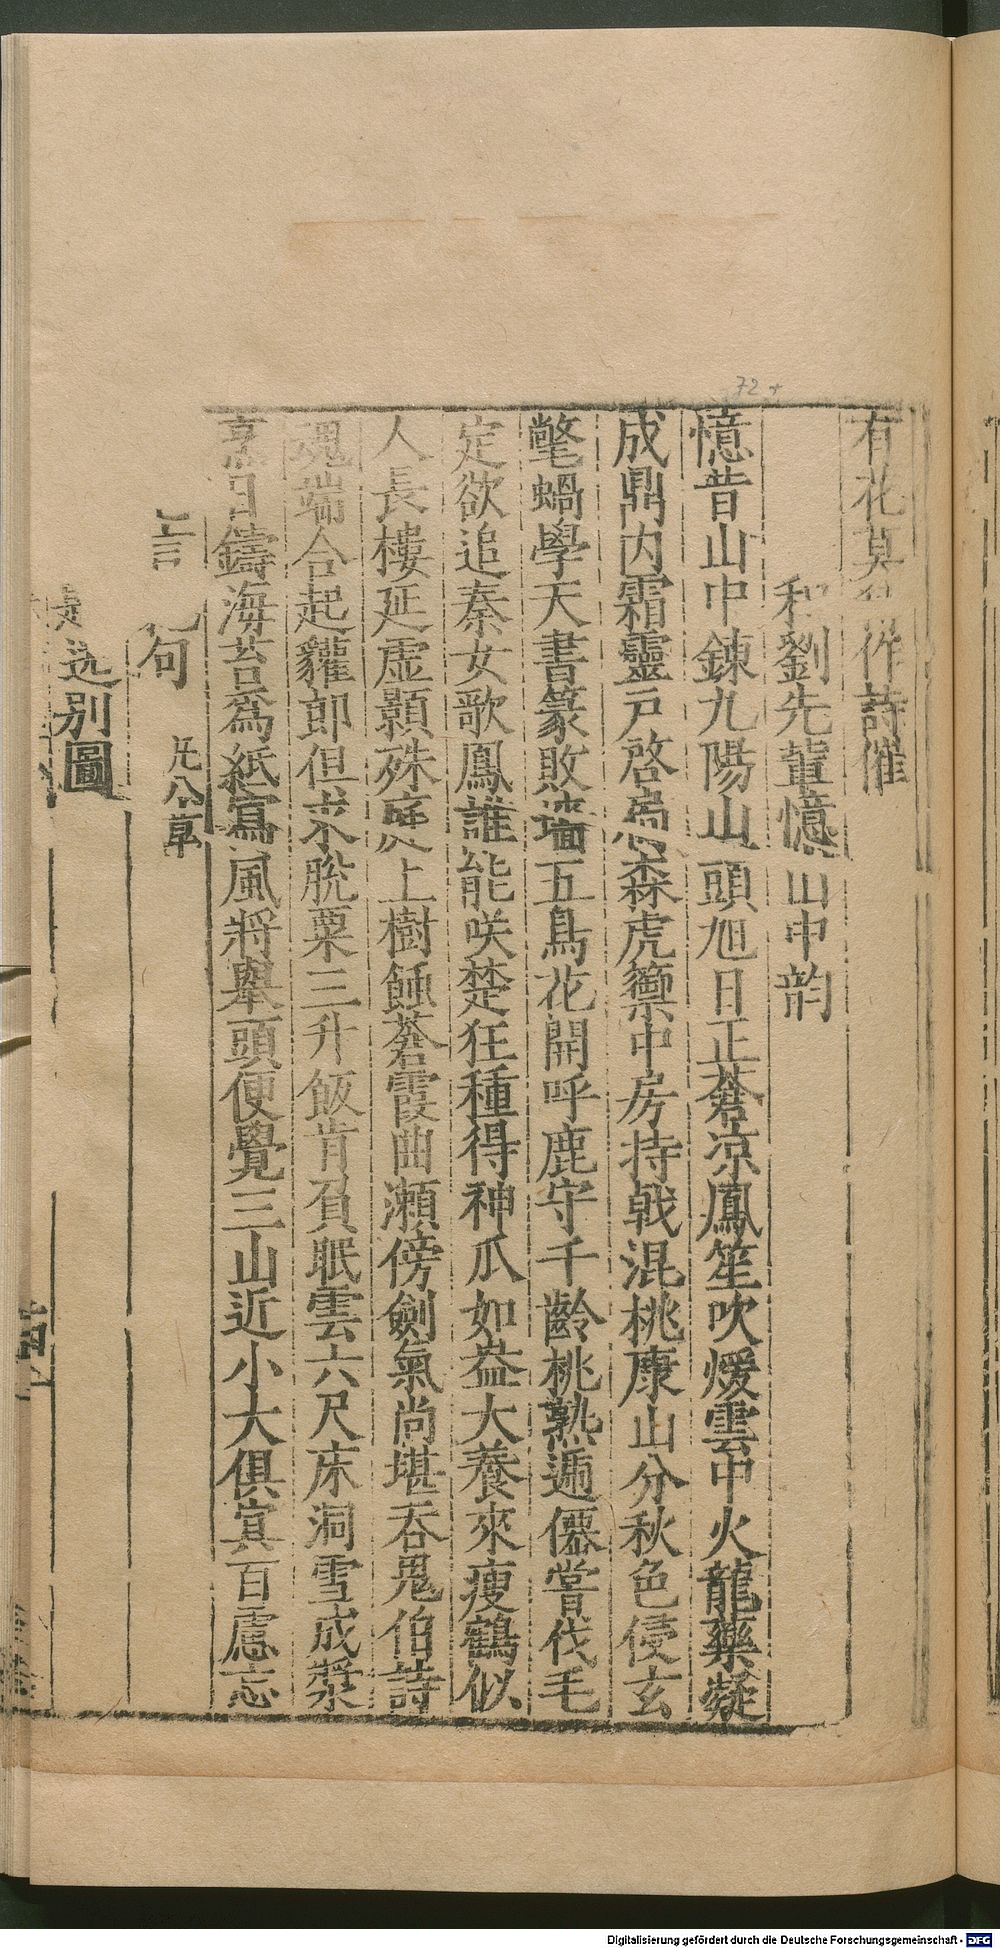 72
有花莫 作詩催
和劉先輩憶山中韵
憶昔山中鍊九陽山頭旭日正蒼凉鳳笙吹煖雲中火龍藥凝
成鼎内霜靈戸啓 森虎籞中房持戟混桃康山分秋色侵玄
氅蝸學天書篆敗墻五鳥花開呼鹿守千齡桃熟遍僊嘗伐毛
定欲追秦女歌鳳誰能咲楚狂種得神瓜如盎大養來瘦鶴似
人長樓延虛顥殊庭 上樹餘蒼霞曲瀨傍劍氣尚堪吞鬼伯詩
魂端合起貛郎但求脫粟三升飯肯負眠雲六尺床洞雪成漿
烹日鑄海苔爲紙寫風將舉頭便覺三山近小大俱冥百慮忘
言 句 凡八首
送別圖
Digitalisierung gefördert durch die Deutsche Forschungsgemeinschaft - DFG